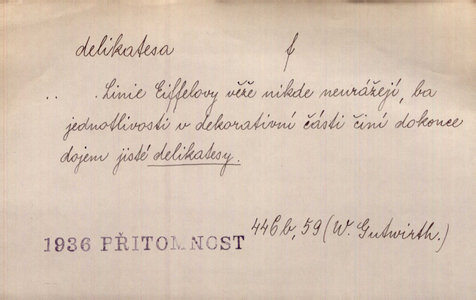 delikatesa f
.. . Linie Eiffelovy věže nikde neurážejí, ba
jednotlivosti v dekorativní části činí dokonce
dojem jisté delikatesy.
1936 PŘÍTOMNOST 446b, 59 (W. Gutwirth.)